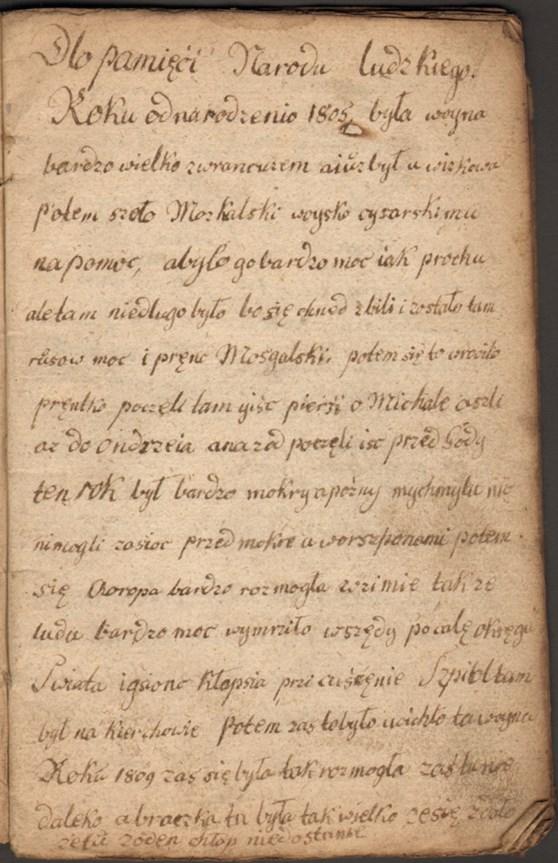 Dlo pamięći Narodu ludzkiego.
Roku odnarodzenio 1805 była woyna
bardzo wielko zwrancuzem aiuz był u
potem szoło Mozkalski woysko cysarskimu
napomoc, abyło gobardzo moc iak prochu
ale tam niedlugo było bosię chned zbili i zostało tam
rusow moc i pręnc Mosgalski. potem się to wrociło
pręntko poczęli tam yiśc pierśi o Michale aszli
az do Ondrzeia anazad poczęli isc przed Gody
ten rok był bardzo mokry apozny mychmytu nic
nimogli zasioc przed mokre a worszponami potem
się Choropa bardzo rozmogła wzimie takze
luda bardzo moc wymrziło wszędy po całę okręgu
Swiata Szpitol tam
był na kierchowie potem zas tobyło ucichło ta woyna
Roku 1809 zas się była tak rozmogła zas
daleko abraczka tu była tak wielko zesię zdało
zetu zoden chłop niedostanie